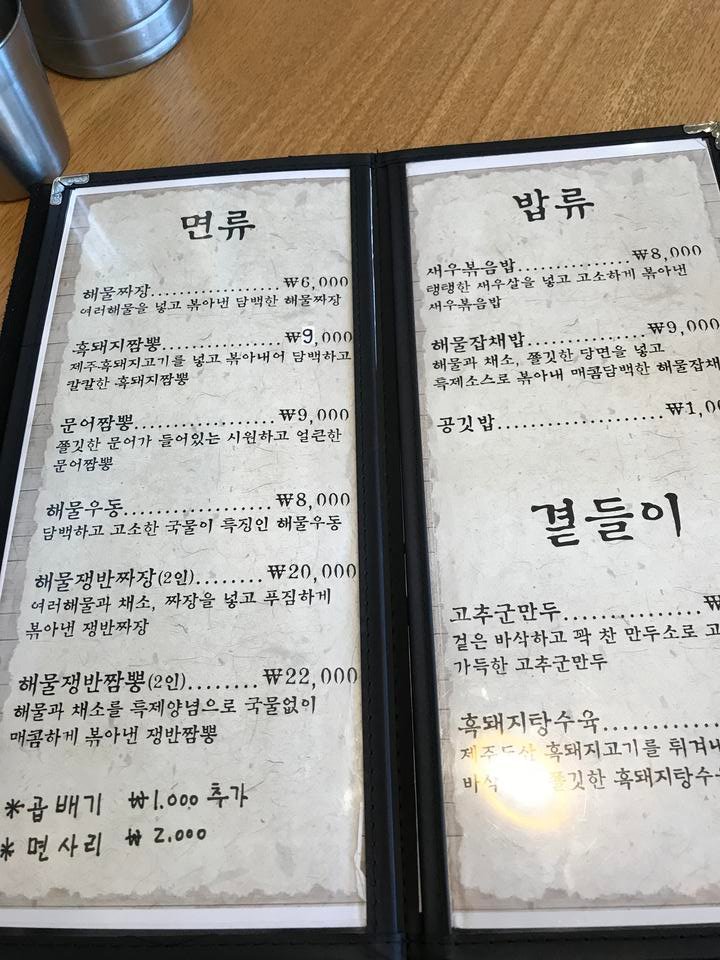 면류
해물짜장..................₩6,000
여러해물을 넣고 볶아낸 담백한 해물짜장
흑돼지짬뽕................₩9,000
제주흑돼지고기를 넣고 볶아내어 담백하고
칼칼한 흑돼지짬뽕
문어짬뽕..................₩9,000
쫄깃한 문어가 들어있는 시원하고 얼큰한
문어짬뽕
해물우동..................₩8,000
담백하고 고소한 국물이 특징인 해물우동
해물쟁반짜장(2인)........₩20,000
여러해물과 채소, 짜장을 넣고 푸짐하게
볶아낸 쟁반짜장
해물쟁반짬뽕(2인)........₩22,000
해물과 채소를 특제양념으로 국물없이
매콤하게 볶아낸 쟁반짬뽕
*곱배기 ₩1.000 추가
* 면사리 ₩ 2.000
밥류
새우볶음밥...............₩8,000
탱탱한 새우살을 넣고 고소하게 볶아낸
새우볶음밥
해물잡채밥...............₩9,000
해물과 채소, 쫄깃한 당면을 넣고
특제소스로 볶아내 매콤담백한 해물잡채
공깃밥....................₩1,00
곁들이
고추군만두................₩
겉은 바삭하고 꽉 찬 만두소로 고
가득한 고추군만두
흑돼지탕수육..............
흑돼지고기를 튀겨내
바삭 쫄깃한 흑돼지탕수